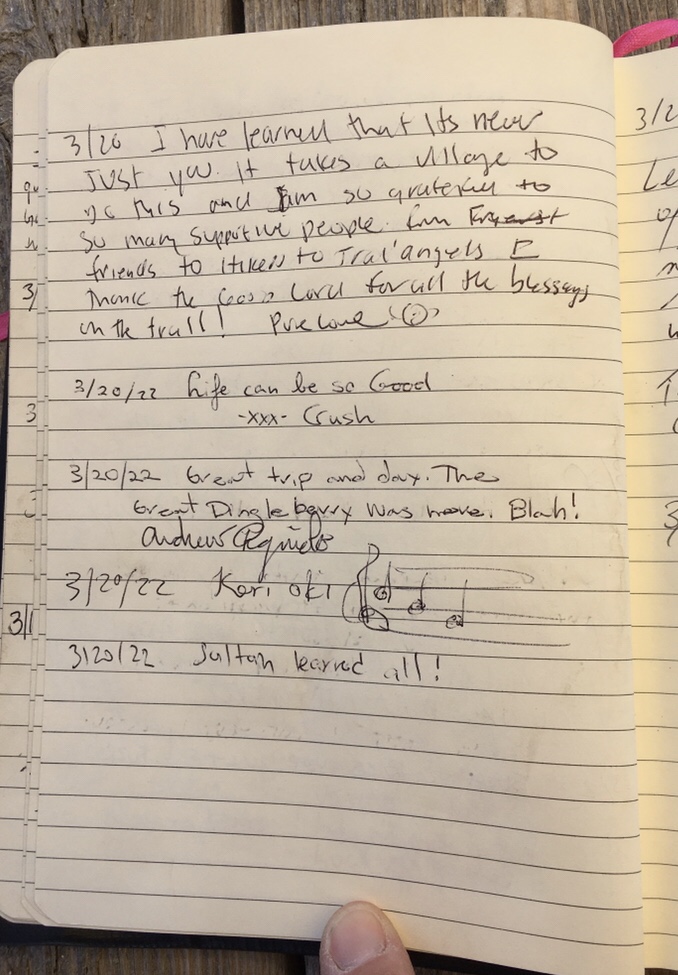 3/20 I have learned that Its never
Just you. It takes a village to
do this and I am so grateful to
so many supportive people. from
friends to Hikers to Trail angels I
Thank the Good Lord for all the blessings
on the trail! Pure Love
3/20/22 Life can be so Good
-xxx- Crush
3/20/22 Great trip and day. The
Great Dingleberry was here. Blah!
Andrew
3/20/22 Keri oki
3/20/22 Sultan learned all!
3/2
Le
3/
3
3/1